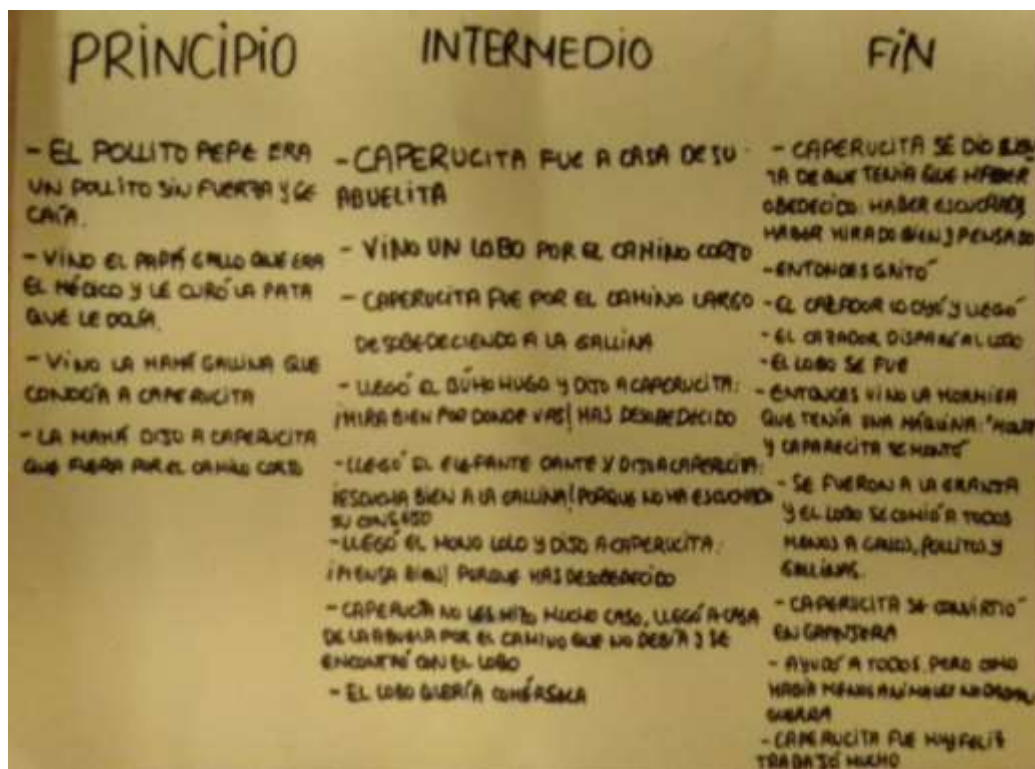 PRINCIPIO
- EL POLLITO PEPE ERA
UN POLLITO SIN FUERZA Y SE
CAÍA.
- VINO EL PAPÁ GALLO QUE ERA
EL MÉDICO Y LE CURÓ LA PATA
QUE LE DOLÍA.
- VINO LA MAMÁ GALLINA QUE
CONOCÍA A CAPERUCITA
- LA MAMÁ DIJO A CAPERUCITA
QUE FUERA POR EL CAMINO CORTO
INTERMEDIO
- CAPERUCITA FUE A CASA DE SU
ABUELITA
- VINO UN LOBO POR EL CAMINO CORTO
- CAPERUCITA FUE POR EL CAMINO LARGO
DESOBEDECIENDO A LA GALLINA
- LLEGÓ EL BÚHO HUGO Y DIJO A CAPERUCITA:
¡MIRA BIEN POR DONDE VAS! HAS DESOBEDECIDO
- LLEGÓ EL ELEFANTE DANTE Y DIJO A CAPERUCITA:
¡ESCUCHA BIEN A LA GALLINA! PORQUE NO HA ESCUCHADO
SU CONSEJO
- LLEGÓ EL MONO LOLO Y DIJO A CAPERUCITA:
¡PIENSA BIEN! PORQUE HAS DESOBEDECIDO
- CAPERUCITA NO LES HIZO MUCHO CASO, LLEGÓ A CASA
DE LA ABUELA POR EL CAMINO QUE NO DEBÍA Y SE
ENCONTRÓ CON EL LOBO
- EL LOBO QUERÍA COMÉRSELA
FIN
- CAPERUCITA SE DIO CUEN
TA DE QUE TENÍA QUE HABER
OBEDECIDO. HABER ESCUCHADO,
HABER MIRADO BIEN Y PENSADO
- ENTONCES GRITÓ
- EL CAZADOR LO OYÓ Y LLEGÓ
- EL CAZADOR DISPARÓ AL LOBO
- EL LOBO SE FUE
- ENTONCES VINO LA HORMIGA
QUE TENÍA UNA MÁQUINA:
Y CAPARECITA SE MONTÓ
- SE FUERON A LA GRANJA
Y EL LOBO SE COMIÓ A TODOS
MENOS A GALLOS, POLLITOS Y
GALLINAS.
- CAPERUCITA SE CONVIRTIÓ
EN GRANJERA
- AYUDÓ A TODOS. PERO COMO
HABÍA MENOS ANIMALES NO
GUERRA
- CAPERUCITA FUE MUY FELIZ
TRABAJÓ MUCHO